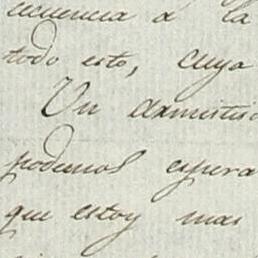 cuencia a la
todo esto, cuya
Un armistic
podemos espera
que estoy mas